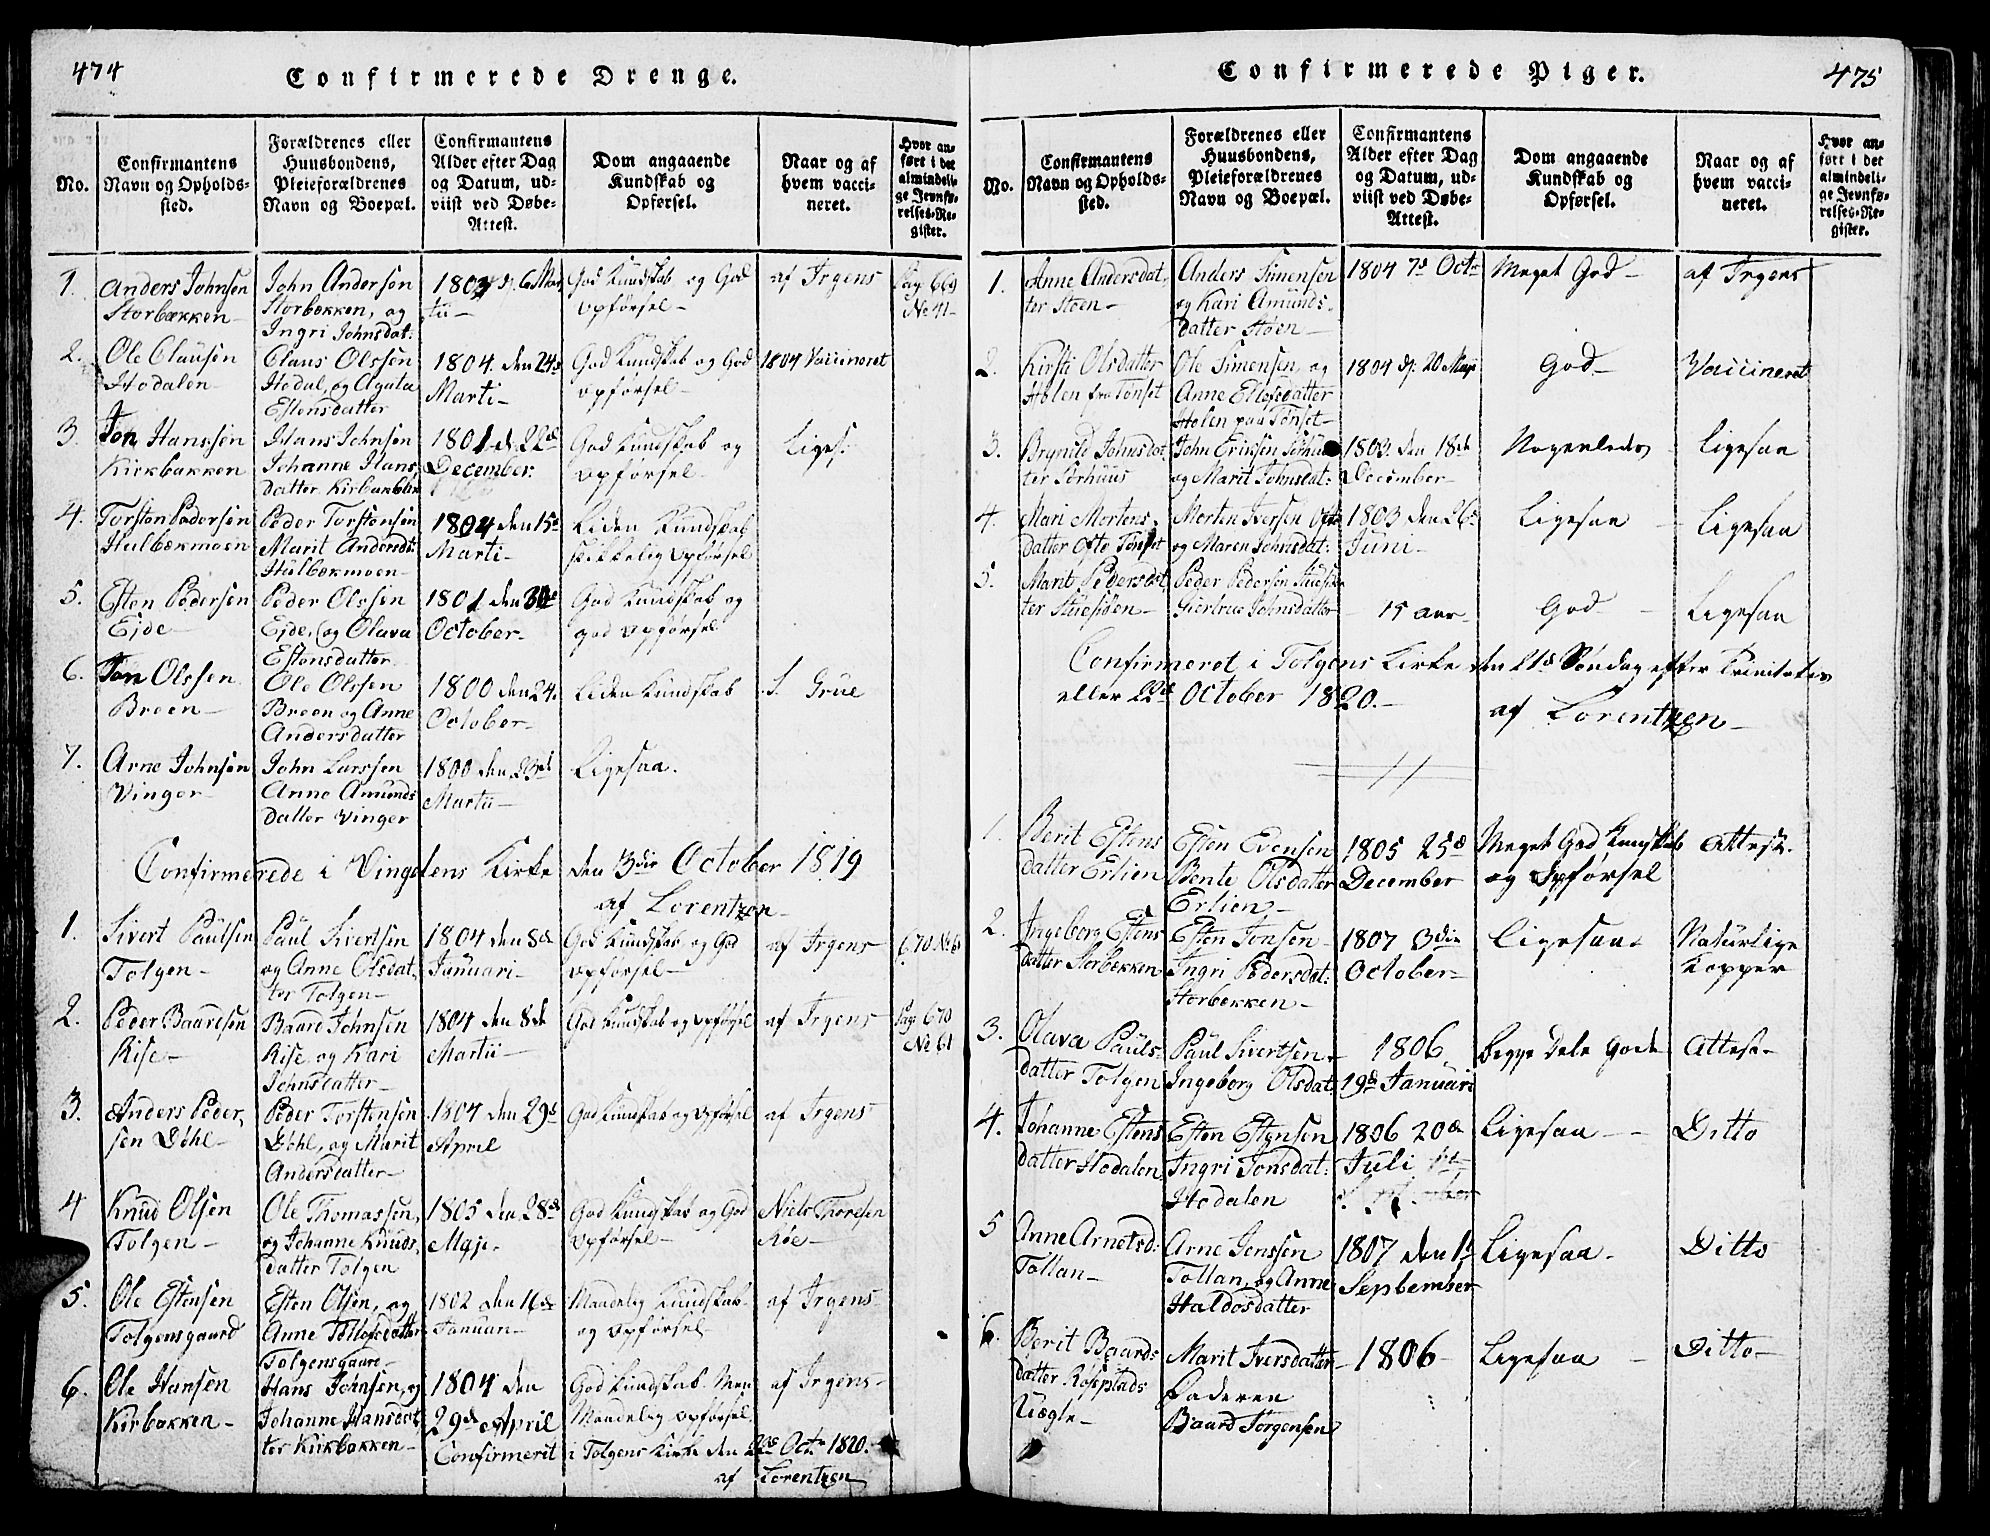 474
Confirmerede Drenge.
No.
Confirmantens
Navn og Opholds-
sted.
Forældrenes eller
Huusbondens,
Pleieforældrenes
Navn og Boepæl.
Confirmantens
Alder efter Dag
og Datum, ud-
viist ved Døbe-
Attest.
Dom angaaende
Kundskab og
Opførsel.
Naar og af
hvem vacci-
neret.
Hvor an-
ført i det
almindeli-
ge Jevnfø-
relses-Re-
gister.
1.
Anders Johnsen
Storbækken
John Andersen
Storbækken, og
Ingri Johnsdat:
1803 d. 6 Mar-
tii
God Kundskab og God
Opførsel
af Irgens
Pag 669
No 41
2.
Ole Clausen
Hodalen
Claus Olssen
Hodal, og Agata
Estensdatter
1804. den 24de
Marti
God Kundskab og God
opførsel
1804 Vaccineret
3.
Jon Hanssen
Kirkbakken
Hans Johnsen
Johanne Hans
datter Kirkbakken
1801 d. 22de
December
God Kundskab og
opførsel
Liges:
4.
Torsten Pedersen
Hulbækmoen
Peder Torstensen
Marit Andersdt:
Hulbækmoen
1804 den 15de
Marti
Liden Kundskab
skikkelig opførsel
5.
Esten Pedersen
Eide
Peder Olssen
Eide, og Olava
Estensdatter
1801 den 30te
October
God Kundskab og
god opførsel
6.
Jon Olssen
Breen
Ole Olssen
Breen og Anne
Andersdatter
1800 den 24.
October
Liden Kundskab
S. Grue
7.
Arne Johnsen
Vinger
John Larssen
Anne Amunds
datter Vinger
1800 den 23de
Martii
Ligesaa.
Confirmerede i Vingelens Kirke den 3die October 1819
af Lorentzen
1.
Sivert Paulsen
Tolgen
Paul Sivertsen
og Anne Olsdat,
ter Tolgen
1804 den 8de
Januari
God Kundskab og God
opførsel
af Irgens
670 No 6
2.
Peder Baardsen
Rise
Baard Johnsen
Rise og Kari
Johnsdatter
1804 den 8de
Martii
God Kundskab og opførsel
af Irgens
Pag 670
No 61
3.
Anders Peder,
sen Døhl
Peder Torstensen
Døhl, og Marit
Andersdatter
1804 den 29de
April
God Kundskab og opførsel
af Irgens
4
Knud Olsen
Tolgen
Ole Thomassen,
og Johanne Knuds,
datter Tolgen
1805 den 28de
Maji
God Kundskab og God
opførsel
Niels Thoresen
Røe
5.
Ole Estensen
Tolgensgaard
Esten Olsen, og
Anne Tollofsdatter
Tolgensgaard
1802 den 16de
Januari
Maadelig Kundskab
og opførsel
af Irgens
6.
Ole Hansen
Kirbakken
Hans Johnsen, og
Johanne Hansdat
ter Kirkbakken
1804 den
29de April
God Kundskab Men
Maadelig opførsel
af Irgens
Confirmerit i Tolgens Kirke den 22de Oct. 1820.
af Lorentzen
475
Confirmerede Piger.
No.
Confirmantens
Navn og Opholds-
sted.
Forældrenes eller
Huusbondens,
Pleieforældrenes
Navn og Boepæl.
Confirmantens
Alder efter Dag
og Datum, ud-
viist ved Døbe-
Attest.
Dom angaaende
Kundskab og
Opførsel.
Naar og af
hvem vacci-
neret.
Hvor an-
ført i det
almindeli-
ge Jevnfø-
relses-Re-
gister.
1.
Anne Andersdat,
ter Støen
Anders Simensen
og Kari Amunds-
datter Støen
1804 7de Octr
Meget God
af Irgens
2.
Kirsti Olsdatter
Holen fra Tønset
Ole Simensen og
Anne Ellefsdatter
Holen paa Tønset
1804 d. 20 Maji
God
Vaccineret
3.
Brynild Johnsdat,
ter Sørhuus
John Ericsen Sørhuus
og Marit Johnsdat:
1803. den 18de
December
Nogenledes
Ligesaa
4.
Mari Mortens
datter Ofte Tønset
Morten Iversen Ofte
og Maren Johnsdat:
1803 den 26de
Juni
Ligesaa
Ligesaa
5.
Marit Pedersdat,
ter
Peder Pedersen
Giertrue Johnsdatter
15 aar
God
Ligesaa
Confirmeret i Tolgens Kirke den 21de Søndag efter Trinitatis
eller 22de October 1820.
af Lorentzen
1.
Berit Estens
datter Erlien
Esten Evensen
Bente Olsdatter
Erlien
1805 25de
December
Meget God Kundskab
og Opførsel
Attest.
2.
Ingeborg Estens
datter Storbækken
Esten Jonsen
Ingri Pedersdat:
Storbækken
1807 3die
October
Ligesaa
Naturlige
Kopper
3.
Olava Pauls
datter Tolgen
Paul Sivertsen
Ingeborg Olsdat:
1806
19de Januari
begge Dele Gode
Attest
4.
Johanne Estens
datter Hodalen
Esten Estensen
Ingri Jonsdat:
Hodalen
1806 20de
Juli
Ligesaa
Ditto
5
Anne Arnetsd:
Tollan
Arne Jenssen
Tollan, og Anne
Haldosdatter
1807 den 1ste
September
Ligesaa
Ditto
6.
Berit Baards
datter Røsestads
Marit Iversdatter
Faderen
Baard Jørgensen
1806
Ligesaa
Ditto